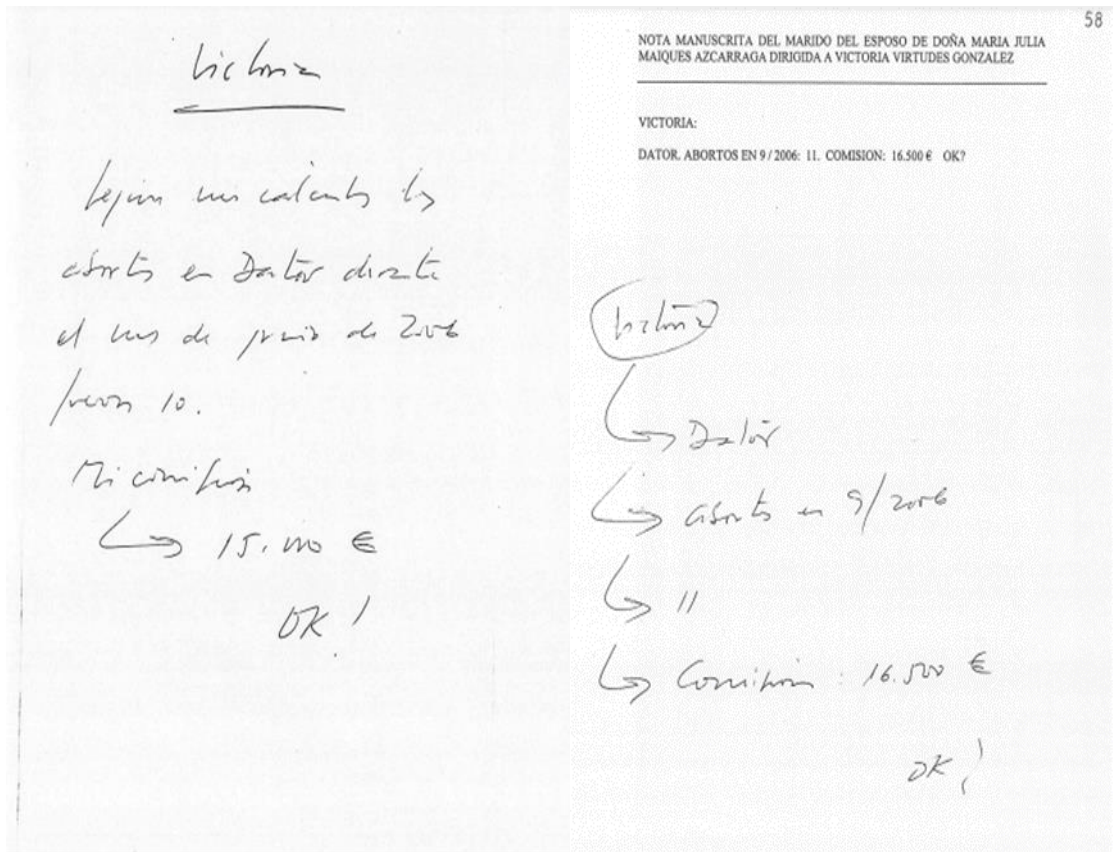 Victoria
Según mis calculos los
abortos en Dator durante
el mes de junio de 2006
fueron 10.
Mi comisión
15.000 €
OK!
58
NOTA MANUSCRITA DEL MARIDO DEL ESPOSO DE DOÑA MARIA JULIA
MAIQUES AZCARRAGA DIRIGIDA A VICTORIA VIRTUDES GONZALEZ
VICTORIA:
DATOR. ABORTOS EN 9 / 2006: 11. COMISION: 16.500 € OK?
Victoria
Dator
abortos en 9/2006
11
Comisión: 16.500 €
OK?